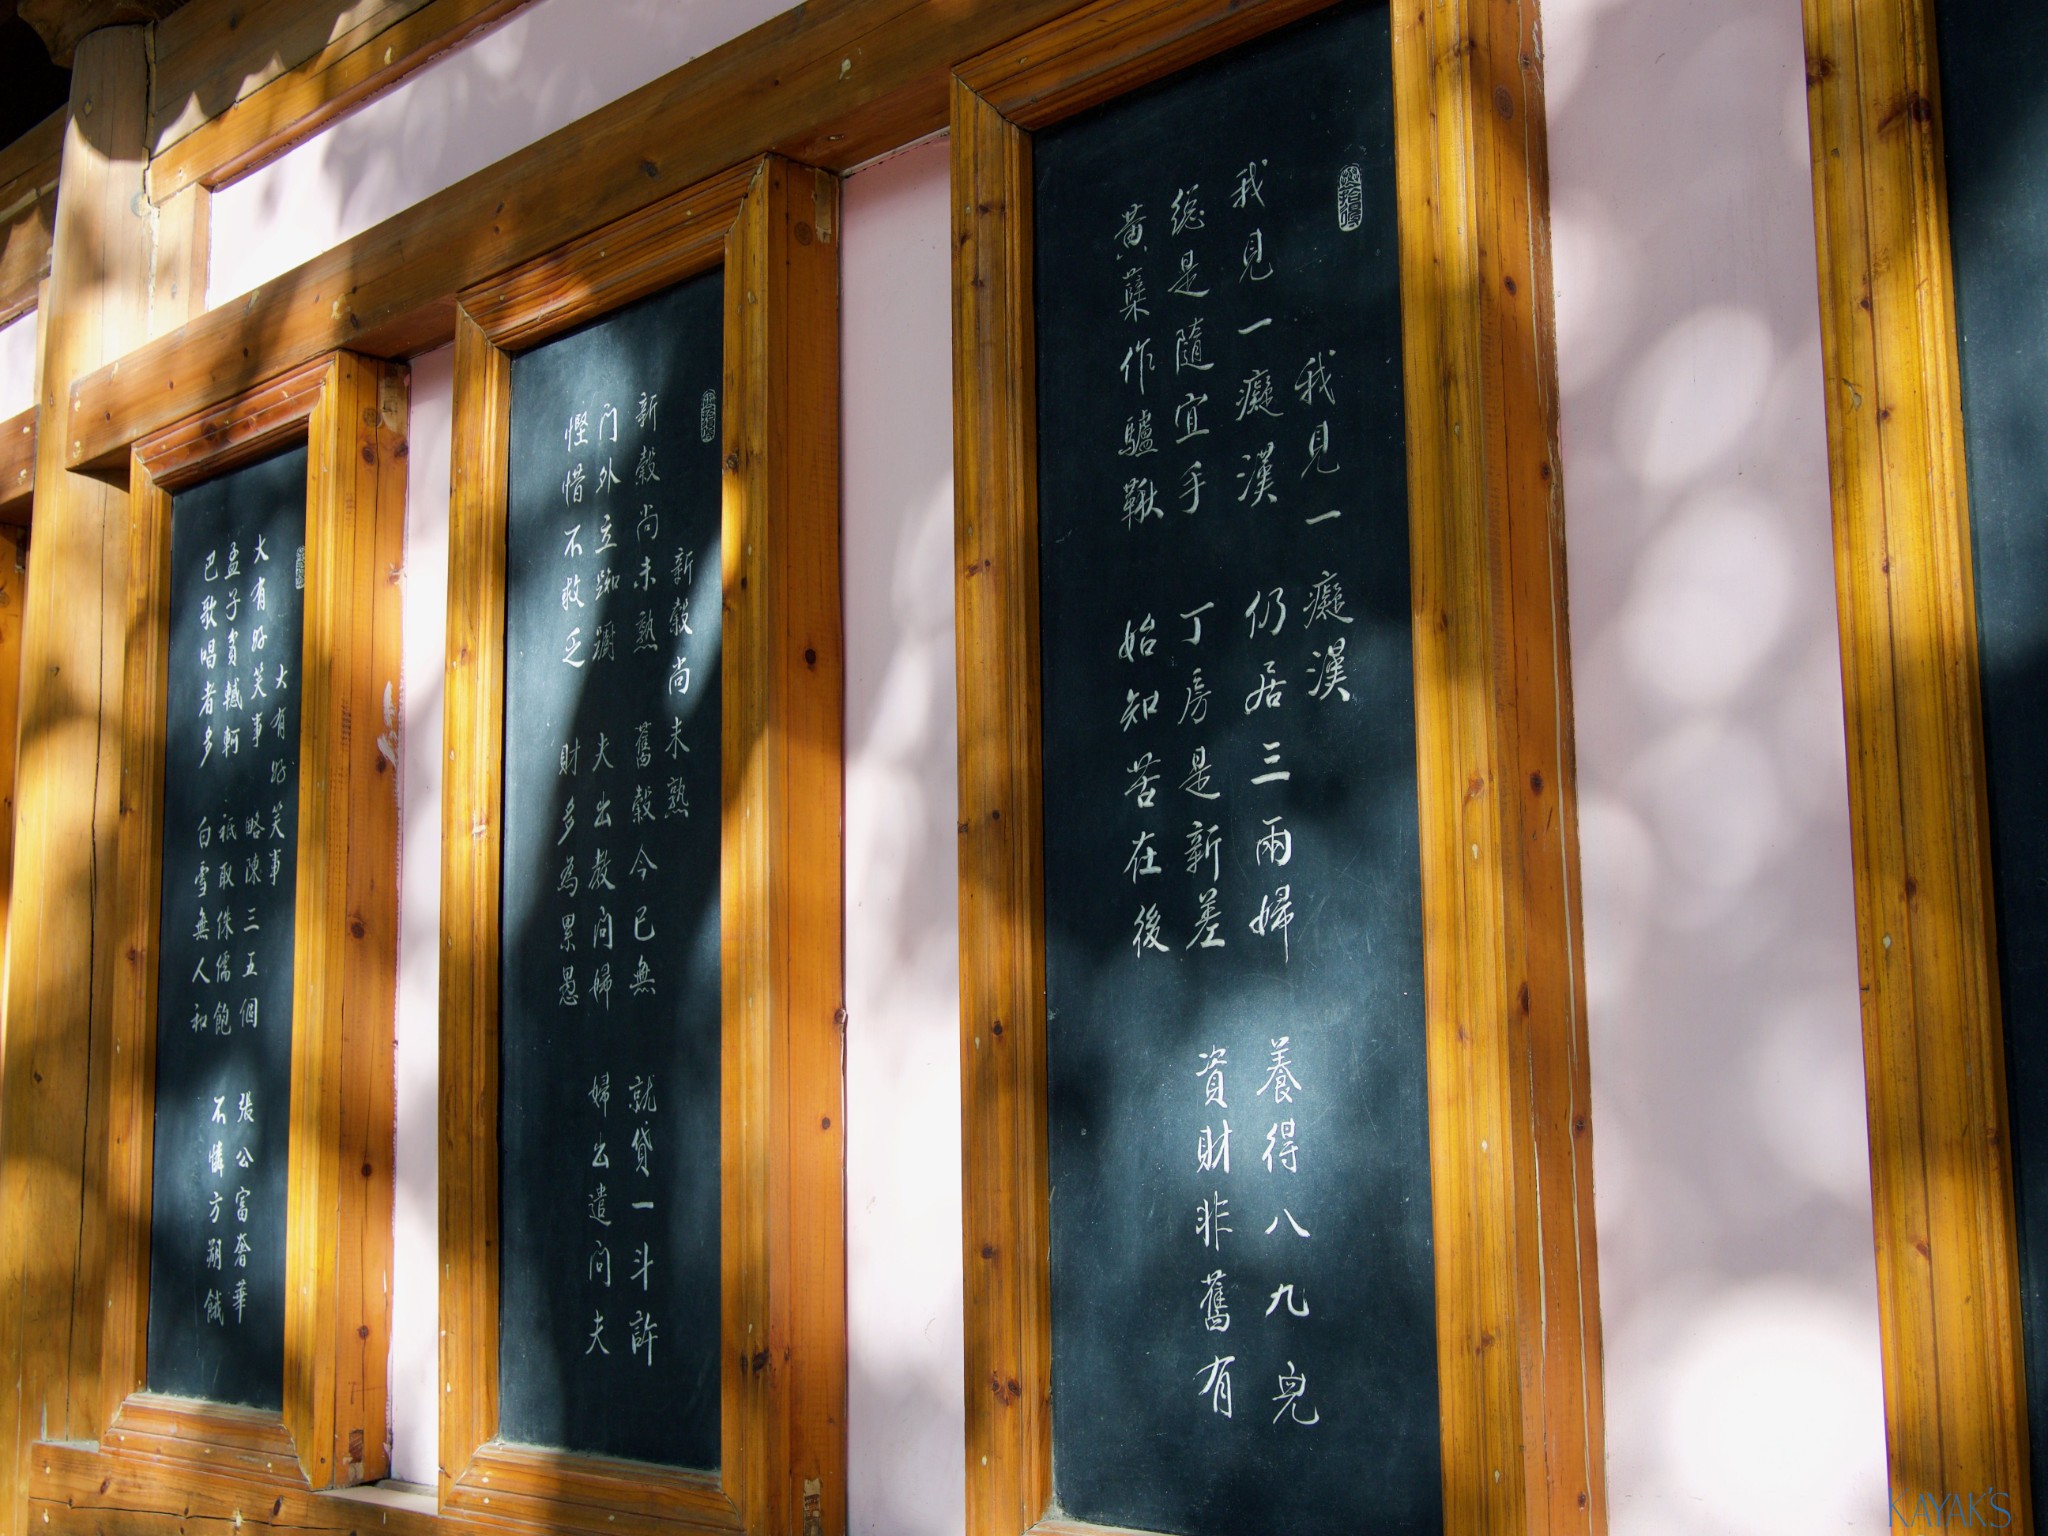 我見一癡漢
我見一癡漢 仍居三兩婦 養得八九兒
總是隨宜手 丁房是新差 資財非舊有
黃蘗作驢鞦 始知苦在後
新穀尚未熟
新穀尚未熟 舊穀今已無 就貸一斗許
門外立踟躕 夫出教問婦 婦出遣問夫
慳惜不救乏 財多為累愚
大有好笑事
大有好笑事 略陳三五個 張公富奢華
孟子貧轗軻 祇取侏儒飽 不憐方朔餓
巴歌唱者多 白雪無人和
KAYAK'S